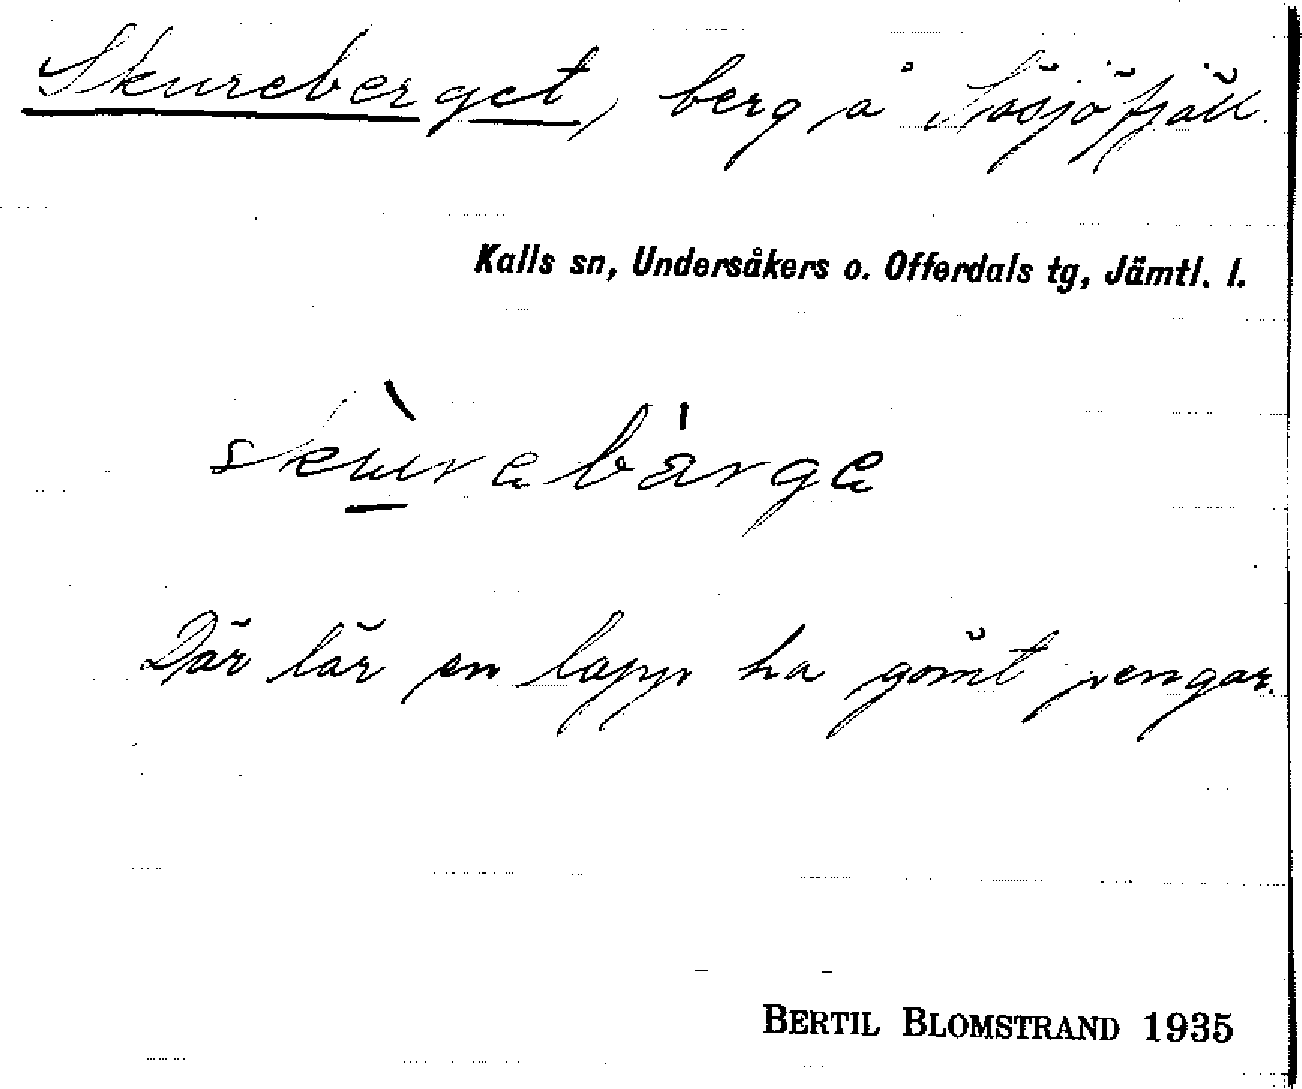 Skureberget, berg å Såsjöfjäll.
Kalls sn, Undersåkers o. Offerdals tg, Jämtl. l.
Där lär en lapp ha gömt pengar.
BERTIL BLOMSTRAND 1935